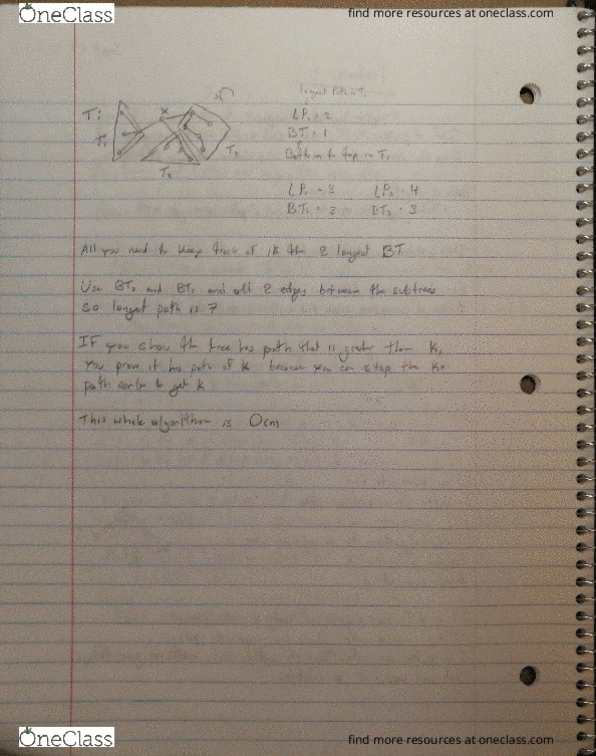 OneClass
find more resources at oneclass.com
longest Path in T₁
T:
LP₁ = 2
T₁
BT₁ = 1
T₃
Bottom to top in T₁
T₂
LP₂ = 3 LP₃ = 4
BT₂ = 2 BT₃ = 3
All you need to keep track of is the 2 longest BT
Use BT₂ and BT₃ and add 2 edges between the subtrees
so longest path is 7
IF you show the tree has path that is greater than k,
you prove it has path of k because you can stop the
path earlier to get k
This whole algorithm is O(n)
OneClass
find more resources at oneclass.com